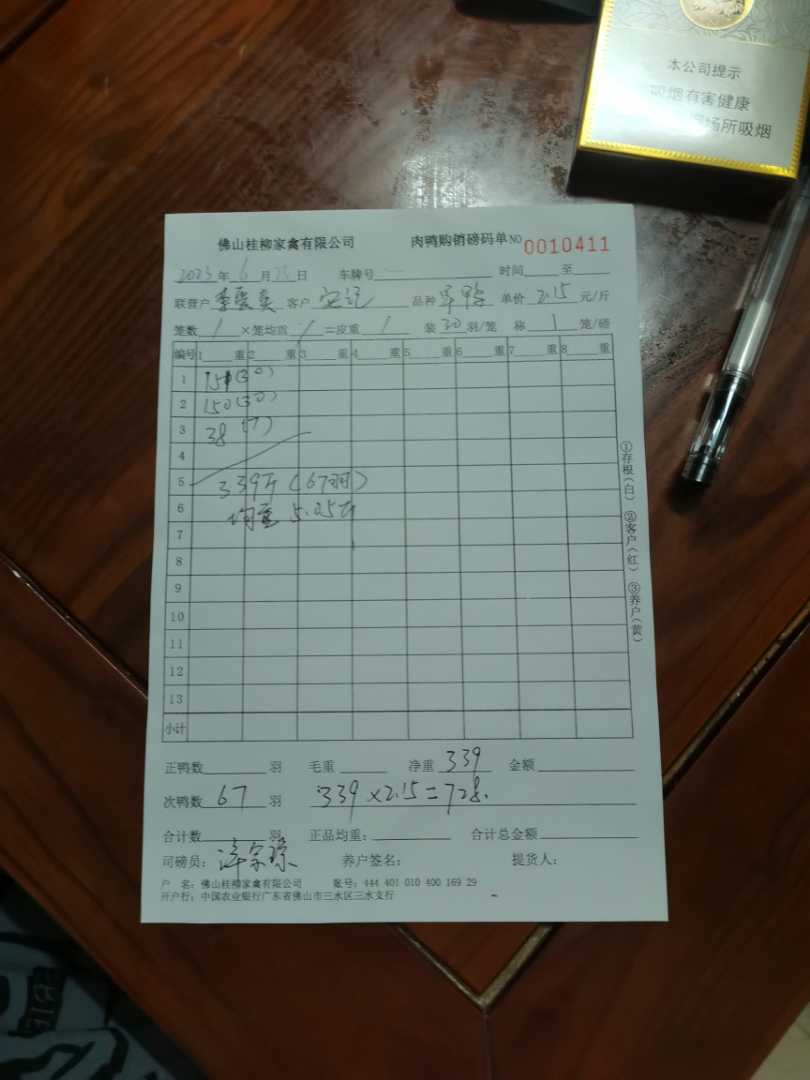 本公司提示
吸烟有害健康
场所吸烟
佛山桂柳家禽有限公司 肉鸭购销磅码单NO 0010411
2023年6月 日 车牌号 时间 至
联营户 客户 品种 单价 2.15 元/斤
笼数 / ×笼均重 / =皮重 / 装 30 羽/笼 称 1 笼/磅
编号 1 重 2 重 3 重 4 重 5 重 6 重 7 重 8 重
1 151(30)
2 150(30)
3 38(7)
4
5 339斤(67羽)
6 均重 5.05斤
7
8
9
10
11
12
13
小计
①存根(白) ②客户(红) ③养户(黄)
正鸭数 羽 毛重 净重 339 金额
次鸭数 67 羽 339×2.15=728.
合计数 羽 正品均重: 合计总金额
司磅员: 养户签名: 提货人:
户 名:佛山桂柳家禽有限公司 账号:444 401 010 400 169 29
开户行:中国农业银行广东省佛山市三水区三水支行